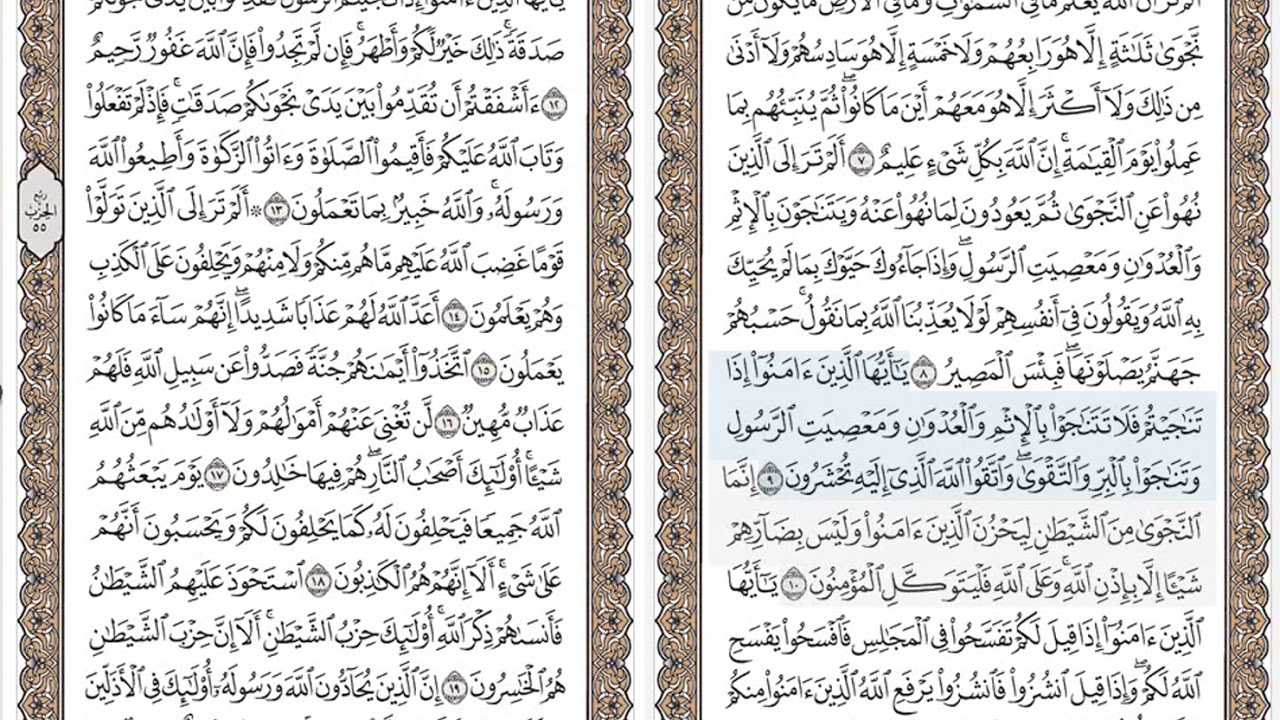 أَلَمْ تَرَ أَنَّ ٱللَّهَ يَعْلَمُ مَا فِى ٱلسَّمَٰوَٰتِ وَمَا فِى ٱلْأَرْضِ مَا يَكُونُ مِن
نَّجْوَىٰ ثَلَٰثَةٍ إِلَّا هُوَ رَابِعُهُمْ وَلَا خَمْسَةٍ إِلَّا هُوَ سَادِسُهُمْ وَلَآ أَدْنَىٰ
مِن ذَٰلِكَ وَلَآ أَكْثَرَ إِلَّا هُوَ مَعَهُمْ أَيْنَ مَا كَانُوا۟ ۖ ثُمَّ يُنَبِّئُهُم بِمَا
عَمِلُوا۟ يَوْمَ ٱلْقِيَٰمَةِ ۚ إِنَّ ٱللَّهَ بِكُلِّ شَىْءٍ عَلِيمٌ ٧ أَلَمْ تَرَ إِلَى ٱلَّذِينَ
نُهُوا۟ عَنِ ٱلنَّجْوَىٰ ثُمَّ يَعُودُونَ لِمَا نُهُوا۟ عَنْهُ وَيَتَنَٰجَوْنَ بِٱلْإِثْمِ
وَٱلْعُدْوَٰنِ وَمَعْصِيَتِ ٱلرَّسُولِ ۖ وَإِذَا جَآءُوكَ حَيَّوْكَ بِمَا لَمْ يُحَيِّكَ
بِهِ ٱللَّهُ وَيَقُولُونَ فِىٓ أَنفُسِهِمْ لَوْلَا يُعَذِّبُنَا ٱللَّهُ بِمَا نَقُولُ ۚ حَسْبُهُمْ
جَهَنَّمُ يَصْلَوْنَهَا ۖ فَبِئْسَ ٱلْمَصِيرُ ٨ يَٰٓأَيُّهَا ٱلَّذِينَ ءَامَنُوٓا۟ إِذَا
تَنَٰجَيْتُمْ فَلَا تَتَنَٰجَوْا۟ بِٱلْإِثْمِ وَٱلْعُدْوَٰنِ وَمَعْصِيَتِ ٱلرَّسُولِ
وَتَنَٰجَوْا۟ بِٱلْبِرِّ وَٱلتَّقْوَىٰ ۖ وَٱتَّقُوا۟ ٱللَّهَ ٱلَّذِىٓ إِلَيْهِ تُحْشَرُونَ ٩ إِنَّمَا
ٱلنَّجْوَىٰ مِنَ ٱلشَّيْطَٰنِ لِيَحْزُنَ ٱلَّذِينَ ءَامَنُوا۟ وَلَيْسَ بِضَآرِّهِمْ
شَيْـًٔا إِلَّا بِإِذْنِ ٱللَّهِ ۚ وَعَلَى ٱللَّهِ فَلْيَتَوَكَّلِ ٱلْمُؤْمِنُونَ ١٠ يَٰٓأَيُّهَا
ٱلَّذِينَ ءَامَنُوٓا۟ إِذَا قِيلَ لَكُمْ تَفَسَّحُوا۟ فِى ٱلْمَجَٰلِسِ فَٱفْسَحُوا۟ يَفْسَحِ
ٱللَّهُ لَكُمْ ۖ وَإِذَا قِيلَ ٱنشُزُوا۟ فَٱنشُزُوا۟ يَرْفَعِ ٱللَّهُ ٱلَّذِينَ ءَامَنُوا۟ مِنكُمْ
يَٰٓأَيُّهَا ٱلَّذِينَ ءَامَنُوٓا۟ إِذَا نَٰجَيْتُمُ ٱلرَّسُولَ فَقَدِّمُوا۟ بَيْنَ يَدَىْ نَجْوَىٰكُمْ
صَدَقَةً ۚ ذَٰلِكَ خَيْرٌ لَّكُمْ وَأَطْهَرُ ۚ فَإِن لَّمْ تَجِدُوا۟ فَإِنَّ ٱللَّهَ غَفُورٌ رَّحِيمٌ
١٢ ءَأَشْفَقْتُمْ أَن تُقَدِّمُوا۟ بَيْنَ يَدَىْ نَجْوَىٰكُمْ صَدَقَٰتٍ ۚ فَإِذْ لَمْ تَفْعَلُوا۟
وَتَابَ ٱللَّهُ عَلَيْكُمْ فَأَقِيمُوا۟ ٱلصَّلَوٰةَ وَءَاتُوا۟ ٱلزَّكَوٰةَ وَأَطِيعُوا۟ ٱللَّهَ
وَرَسُولَهُۥ ۚ وَٱللَّهُ خَبِيرٌۢ بِمَا تَعْمَلُونَ ١٣ ۞ أَلَمْ تَرَ إِلَى ٱلَّذِينَ تَوَلَّوْا۟
قَوْمًا غَضِبَ ٱللَّهُ عَلَيْهِم مَّا هُم مِّنكُمْ وَلَا مِنْهُمْ وَيَحْلِفُونَ عَلَى ٱلْكَذِبِ
وَهُمْ يَعْلَمُونَ ١٤ أَعَدَّ ٱللَّهُ لَهُمْ عَذَابًا شَدِيدًا ۖ إِنَّهُمْ سَآءَ مَا كَانُوا۟
يَعْمَلُونَ ١٥ ٱتَّخَذُوٓا۟ أَيْمَٰنَهُمْ جُنَّةً فَصَدُّوا۟ عَن سَبِيلِ ٱللَّهِ فَلَهُمْ
عَذَابٌ مُّهِينٌ ١٦ لَّن تُغْنِىَ عَنْهُمْ أَمْوَٰلُهُمْ وَلَآ أَوْلَٰدُهُم مِّنَ ٱللَّهِ
شَيْـًٔا ۚ أُو۟لَٰٓئِكَ أَصْحَٰبُ ٱلنَّارِ ۖ هُمْ فِيهَا خَٰلِدُونَ ١٧ يَوْمَ يَبْعَثُهُمُ
ٱللَّهُ جَمِيعًا فَيَحْلِفُونَ لَهُۥ كَمَا يَحْلِفُونَ لَكُمْ ۖ وَيَحْسَبُونَ أَنَّهُمْ
عَلَىٰ شَىْءٍ ۚ أَلَآ إِنَّهُمْ هُمُ ٱلْكَٰذِبُونَ ١٨ ٱسْتَحْوَذَ عَلَيْهِمُ ٱلشَّيْطَٰنُ
فَأَنسَىٰهُمْ ذِكْرَ ٱللَّهِ ۚ أُو۟لَٰٓئِكَ حِزْبُ ٱلشَّيْطَٰنِ ۚ أَلَآ إِنَّ حِزْبَ ٱلشَّيْطَٰنِ
هُمُ ٱلْخَٰسِرُونَ ١٩ إِنَّ ٱلَّذِينَ يُحَآدُّونَ ٱللَّهَ وَرَسُولَهُۥٓ أُو۟لَٰٓئِكَ فِى ٱلْأَذَلِّينَ
ربع
الحزب
٥٥